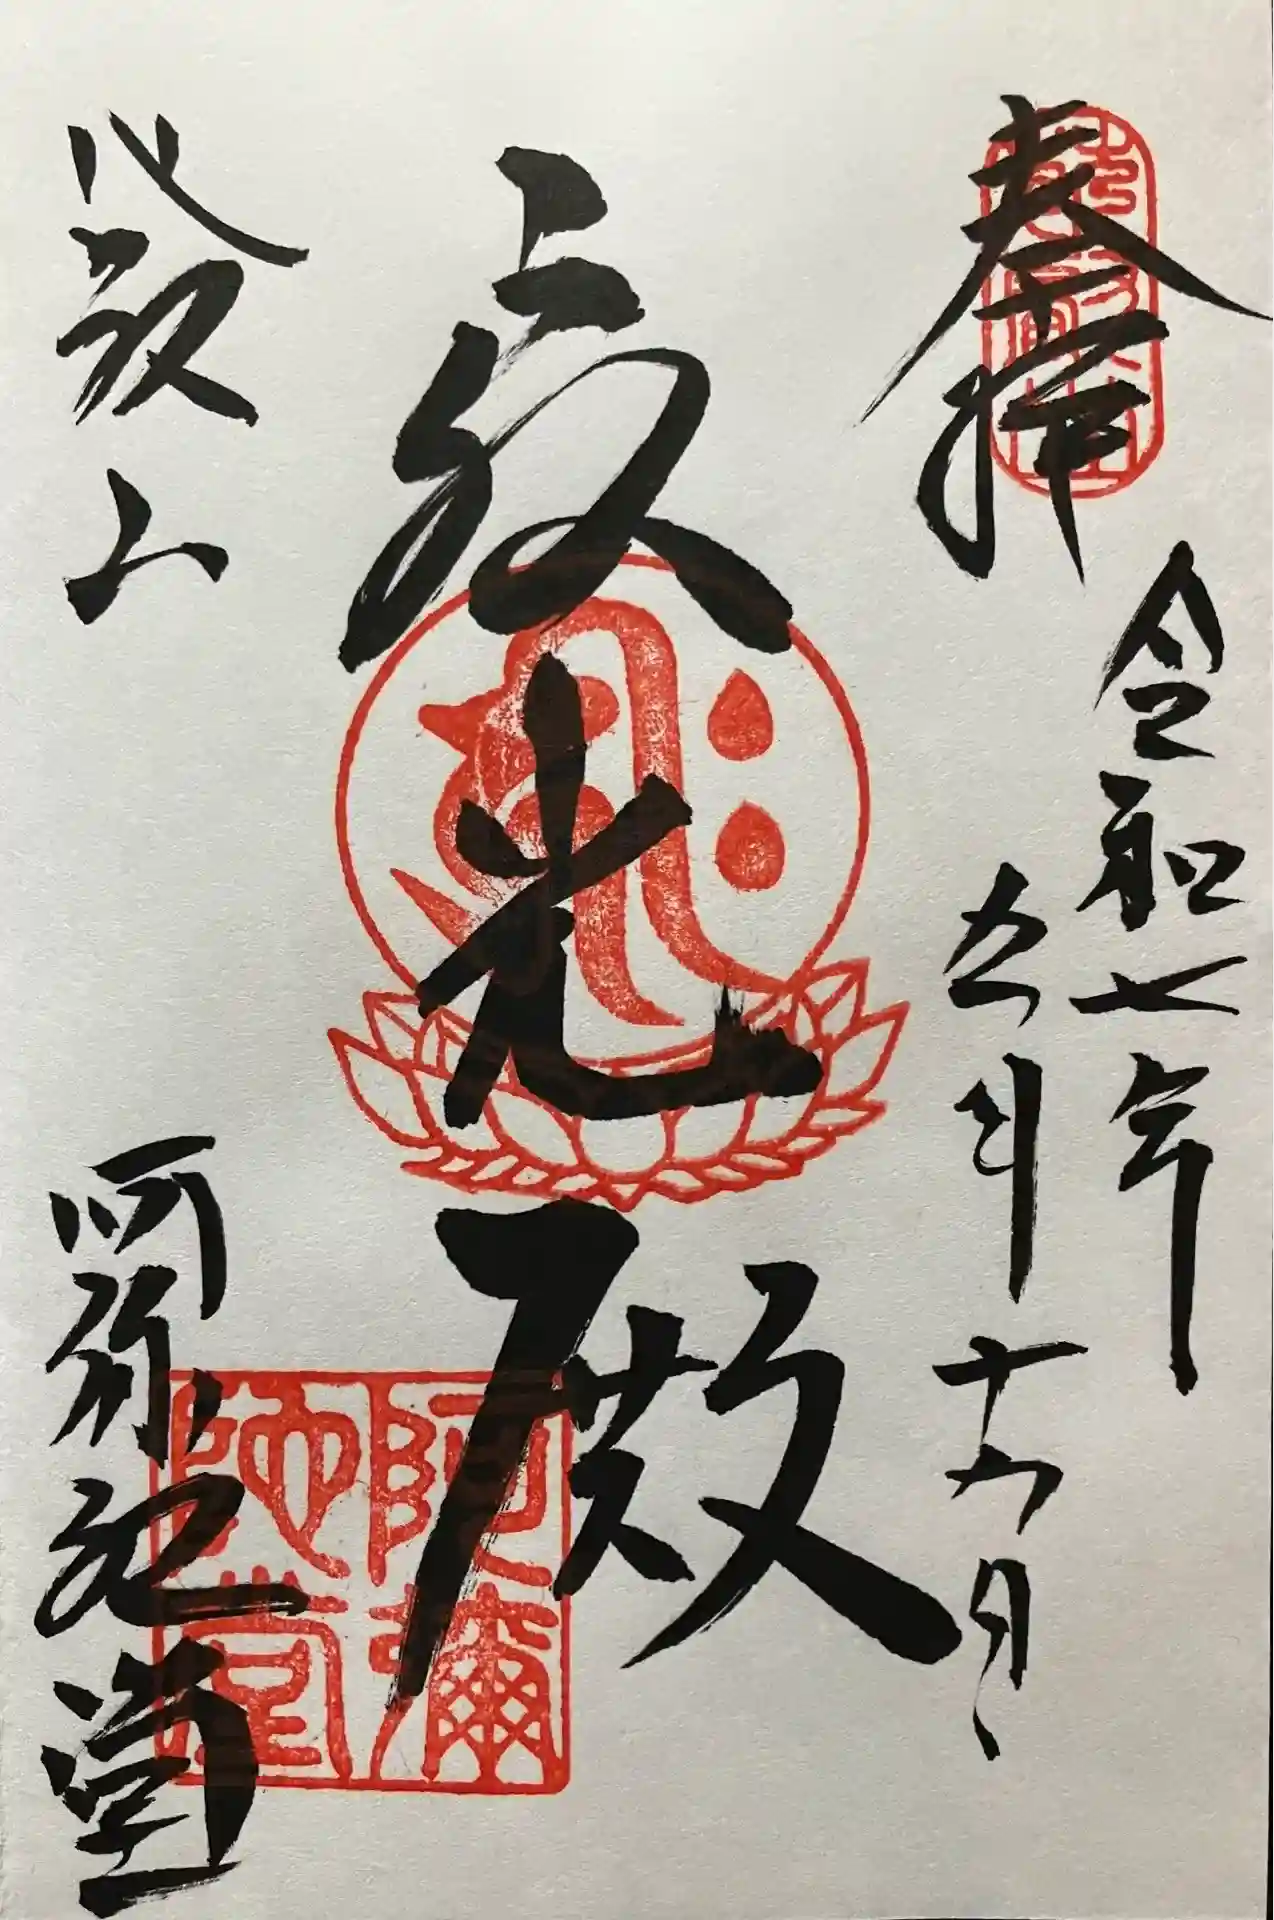 奉拝
令和七年
五月十六日
寂光殿
比叡山
阿弥陀堂
阿彌
陀堂